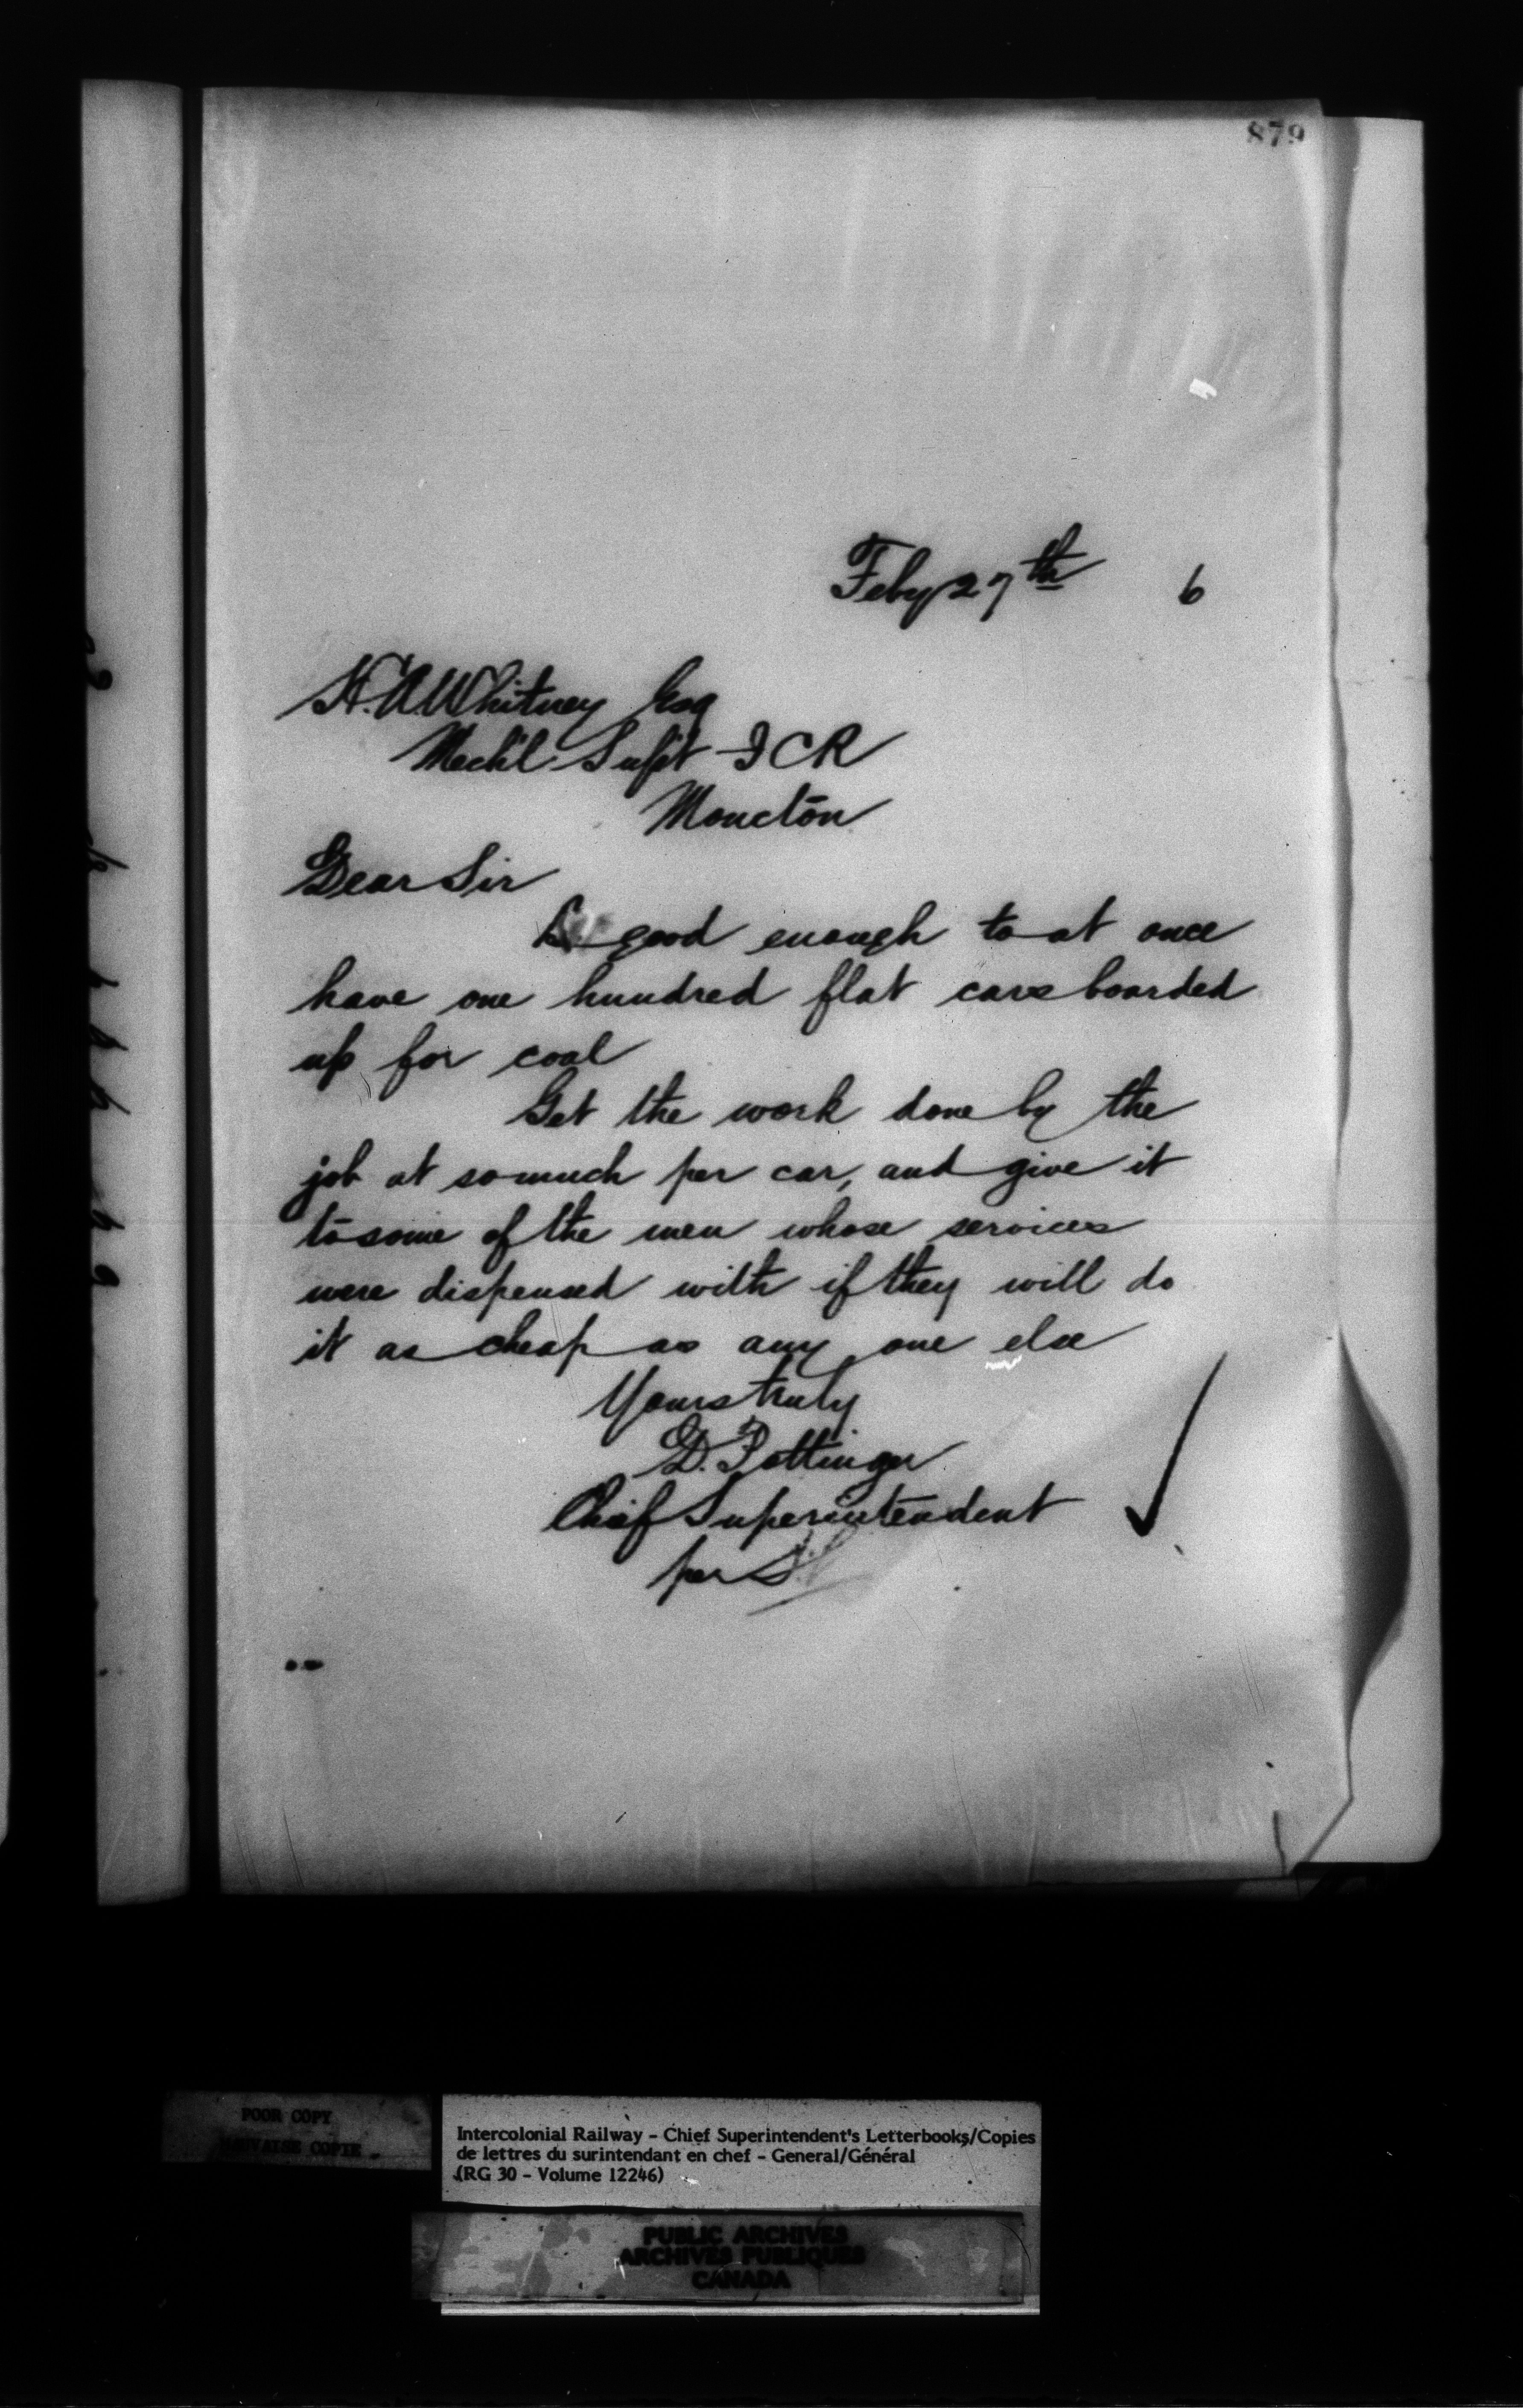 879
Feby 27th 6
H. A. Whitney Esq
Mech'l Supt I C R
Moncton
Dear Sir
good enough to at once
have one hundred flat cars boarded
up for coal
Get the work done by the
job at so much per car, and give it
to some of the men whose services
were dispensed with if they will do
it as cheap as any one else
Yours truly
D. Pottinger
Chief Superintendent
per
POOR COPY
MAUVAISE COPIE
Intercolonial Railway - Chief Superintendent's Letterbooks/Copies
de lettres du surintendant en chef - General/Général
(RG 30 - Volume 12246)
PUBLIC ARCHIVES
ARCHIVES PUBLIQUES
CANADA